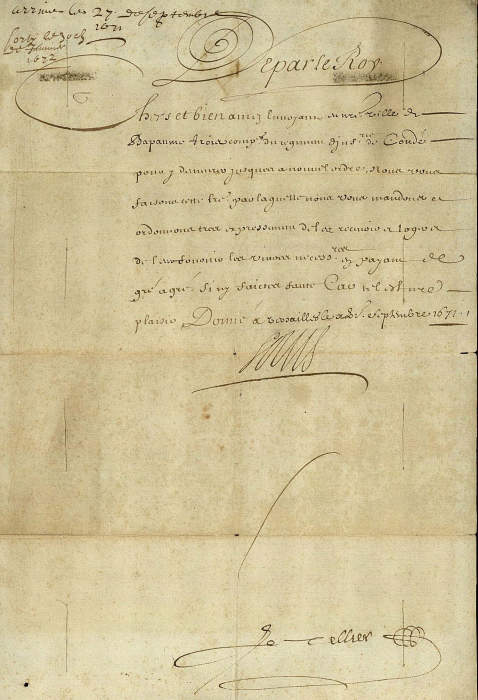 arrivé le 27 de septembre
1671
sorty
1672
De par le Roy
Chers et bien amez Envoyant en n're ville de
Bapaume trois comp.es du regiment d'Inf.rie de Condé
pour y demeurer jusques a nouvel ordre, Nous vous
faisons cette l're, par laquelle nous vous mandons et
ordonnons tres expressement de les recevoir et loger et
de leur fournir les vivres necess.res en payant de
gré a gré. Si n'y faictes faute Car tel est n're
plaisir, Donné a Versailles le septembre 1671.
Louis
Le Tellier